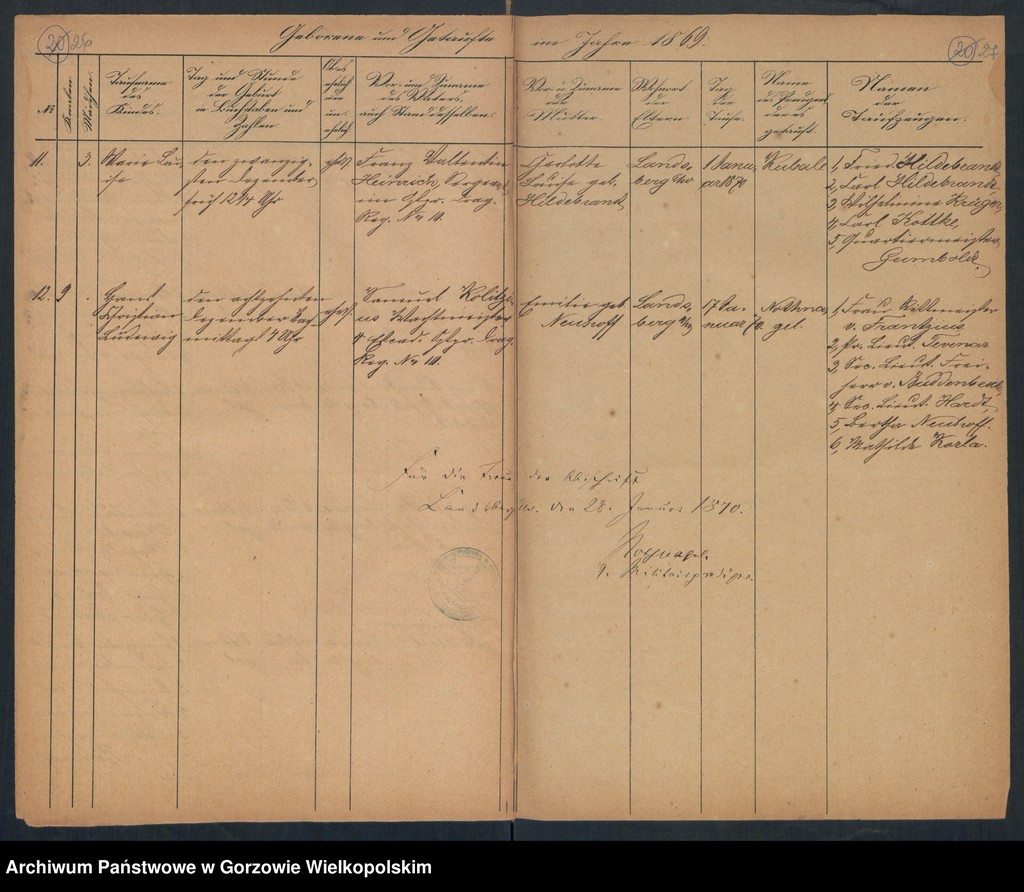 20 26
Geborene und Getaufte im Jahre 1869.
20 27
No
Knaben.
Mädchen.
Taufname
des
Kindes.
Tag und Stunde
der Geburt
in Buchstaben und
Zahlen.
Ob es
ehelich
oder
un-
ehelich
Vor- und Zuname
des Vaters,
auch Stand desselben.
Vor- u. Zuname
der
Mutter.
Wohnort
der
Eltern.
Tag
der
Taufe.
Name
des Predigers
der es
getauft.
Namen
der
Taufzeugen.
11.
3.
Marie Lou-
ise
den zwanzig-
sten Dezember
früh 12 Uhr
ehel.
Franz Valtentin
Heinrich, Sergeant
im Drag.
Reg. No 10.
Louise geb.
Hildebrand
Lands-
berg a/W
1 Janu-
ar 1870
Kubale
1, Fried. Hildebrandt
2, Carl Hildebrandt
3, Wilhelmine Krieger
4, Carl Kottke,
5, Quartiermeister
Gumbold.
12.
9
Paul
Christian
Ludwig
den achtzehnten
Dezember Nach-
mittags 4 Uhr
ehel.
Samuel
Wachtmeister
4 Drag.
Reg. No 10.
Emilie geb.
Neuhoff
Lands-
berg a/W
17 Ja-
nuar 70.
Nothna-
gel.
1, Frau Rittmeister
v. Frantzius
2, Pr. Lieut.
3, Sec. Lieut. Frei-
herr v. Buddenbrock
4, Sec. Lieut. Hardt,
5, Bertha Neuhoff.
6, Mathilde Karla.
Für die Treue der Abschrift
Landsberg a/W. den 28. Januar 1870.
Nothnagel.
Archiwum Państwowe w Gorzowie Wielkopolskim